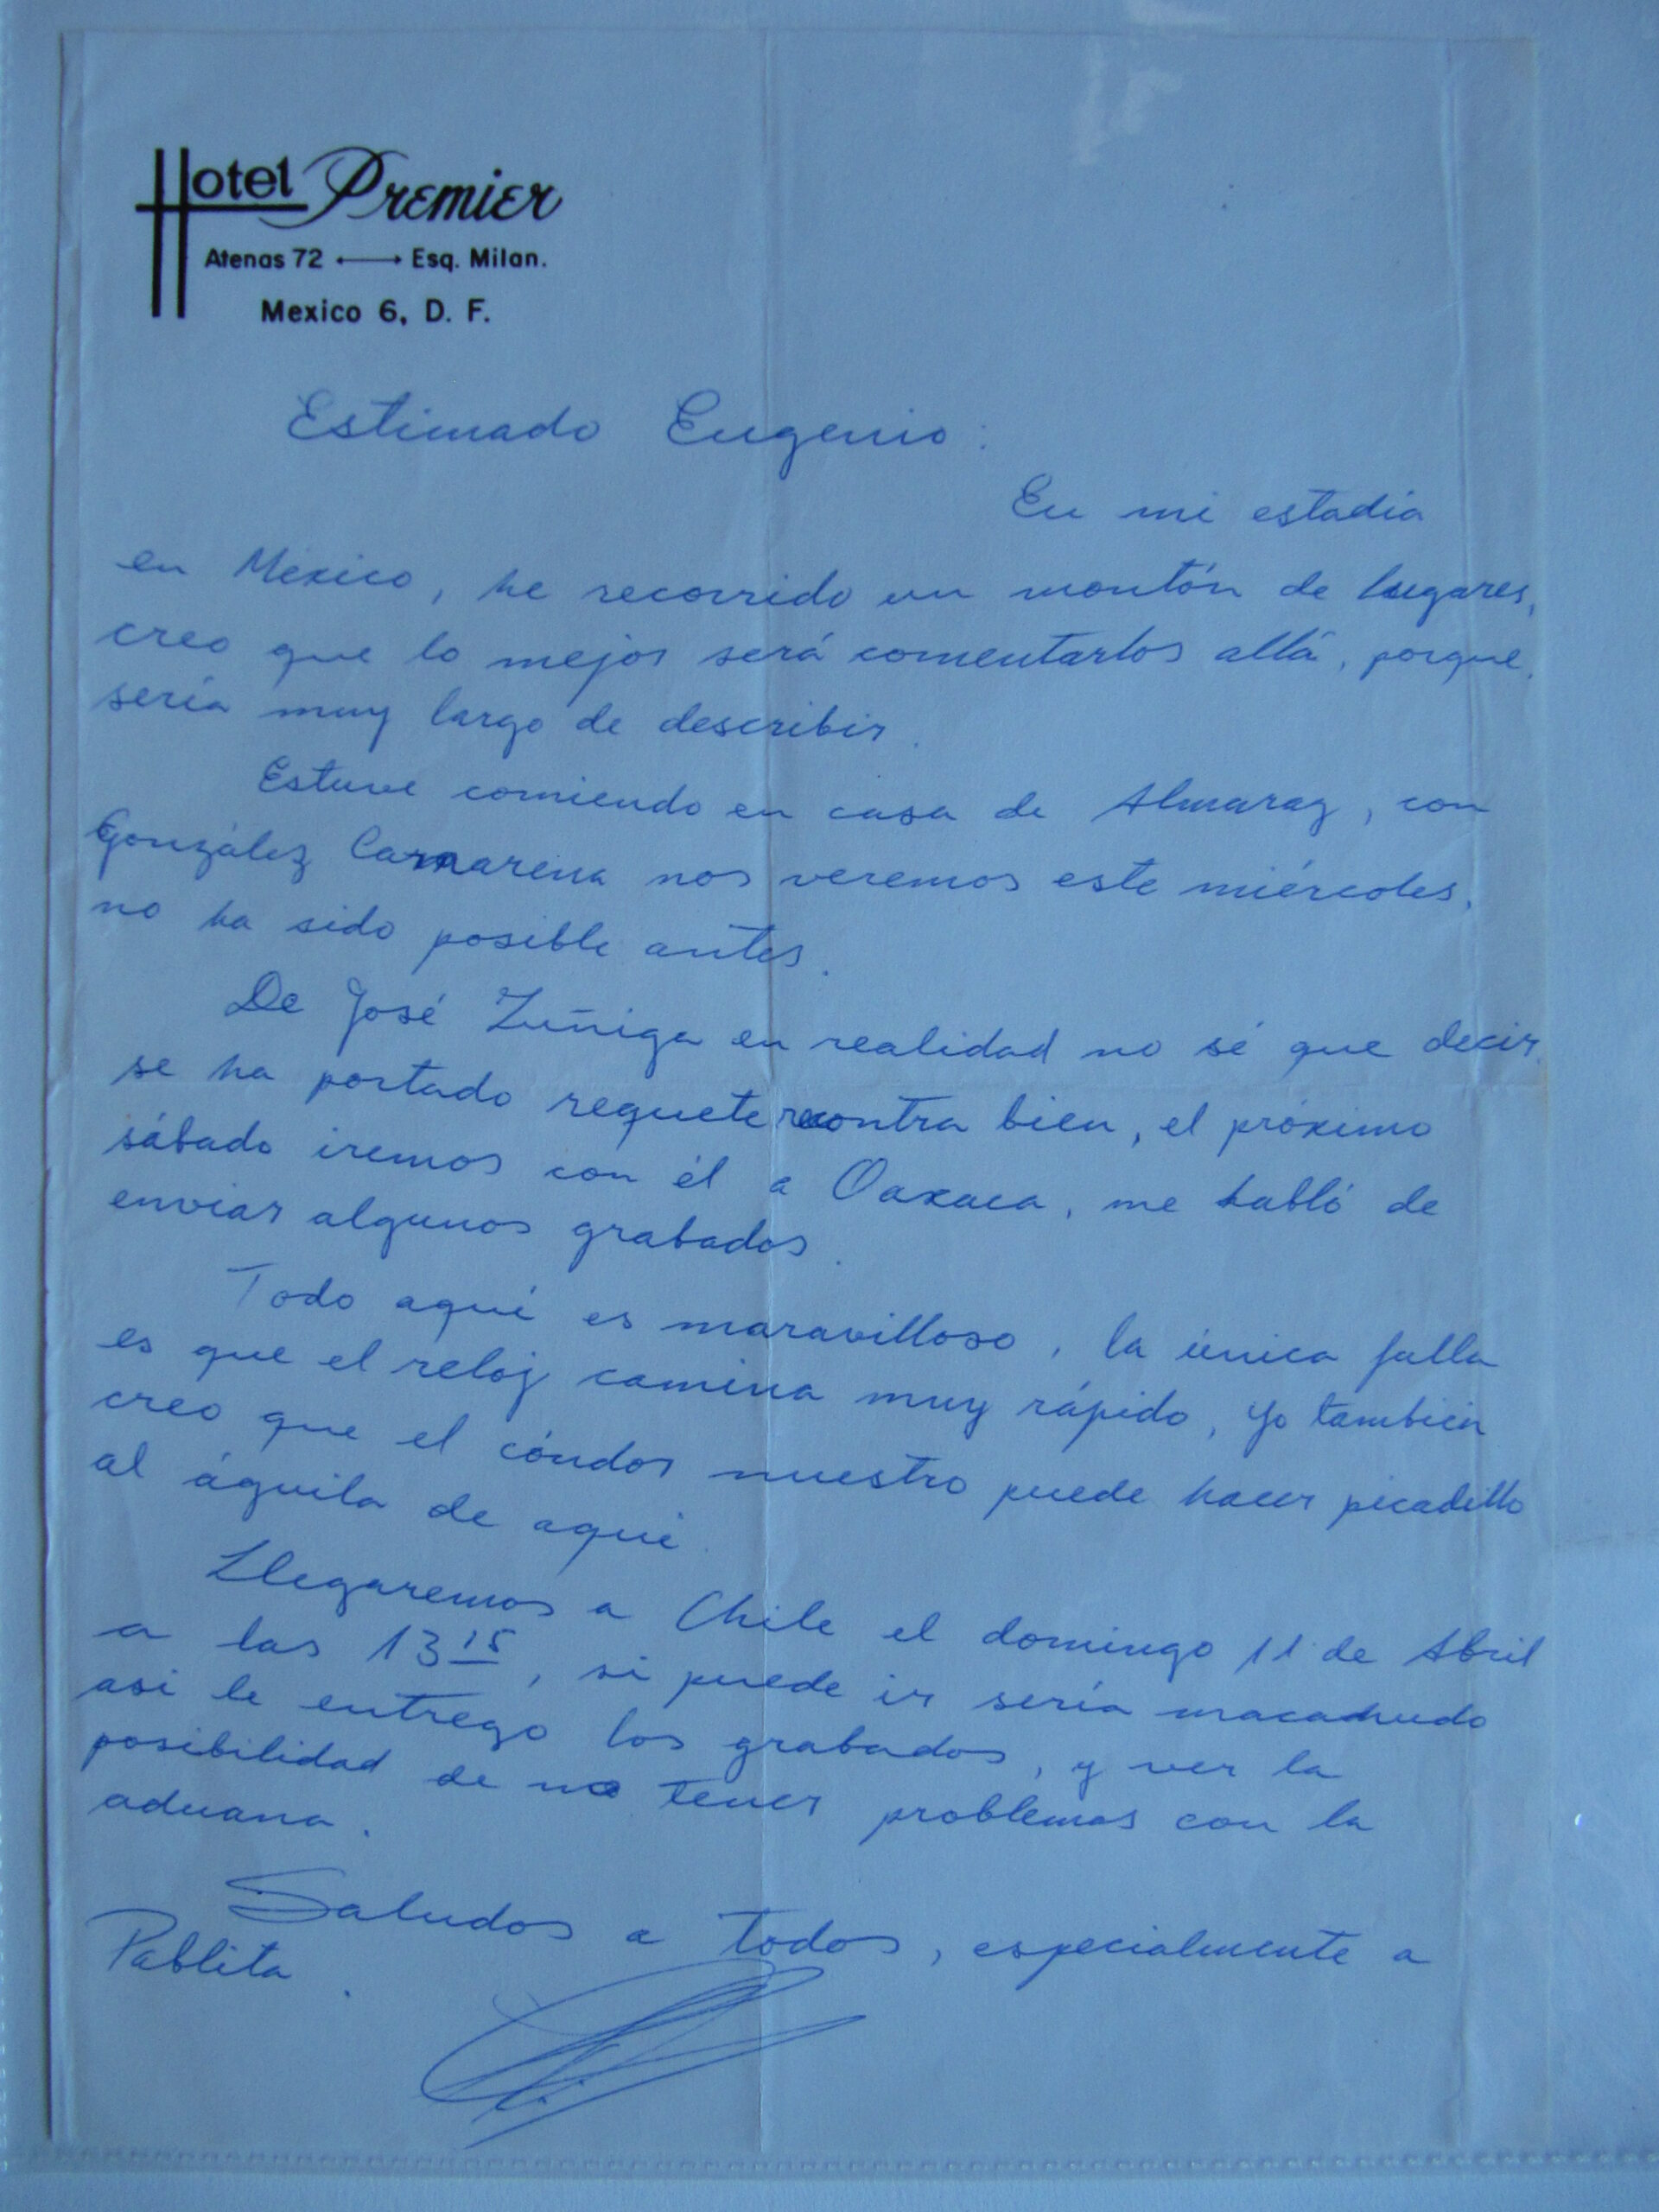 Hotel Premier
Atenas 72 ←→ Esq. Milan.
Mexico 6, D. F.
Estimado Eugenio:
En mi estadía
en México, he recorrido un montón de lugares,
creo que lo mejor será comentarlos allá, porque
sería muy largo de describir.
Estuve comiendo en casa de Almaraz, con
González Camarena nos veremos este miércoles,
no ha sido posible antes.
De José Zuñiga en realidad no sé que decir,
se ha portado requeterecontra bien, el próximo
sábado iremos con él a Oaxaca, me habló de
enviar algunos grabados.
Todo aquí es maravilloso, la única falla
es que el reloj camina muy rápido, yo también
creo que el cóndor nuestro puede hacer picadillo
al águila de aquí.
Llegaremos a Chile el domingo 11 de Abril
a las 13 15, si puede ir sería macanudo
asi le entrego los grabados, y ver la
posibilidad de no tener problemas con la
aduana.
Saludos a todos, especialmente a
Pablita.